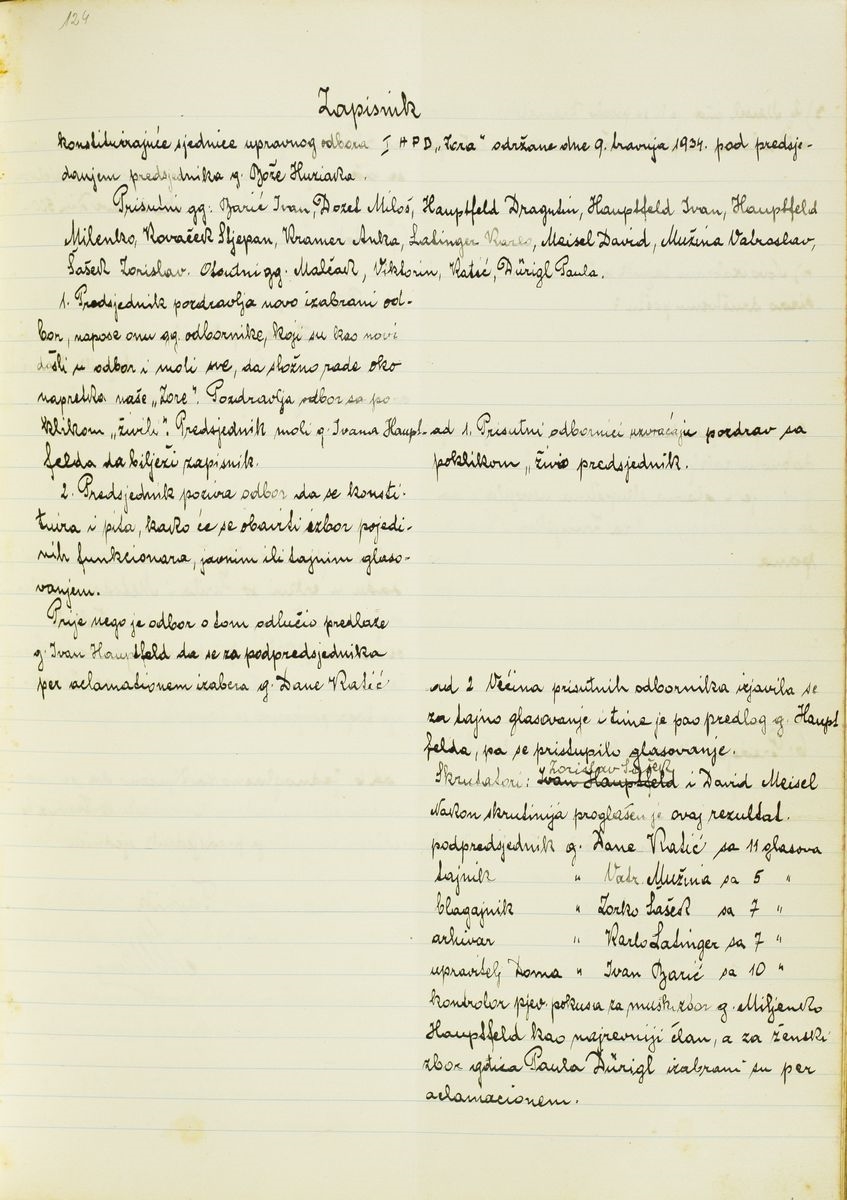 124
Zapisnik
konstituirajuće sjednice upravnog odbora I HPD „Zora" održane dne 9. travnja 1934. pod predsje-
danjem predsjednika g. Bože Huziaka.
Prisutni gg. Barić Ivan, Dozet Miloš, Hauptfeld Dragutin, Hauptfeld Ivan, Hauptfeld
Milenko, Kovaček Stjepan, Kramer Anka, Latinger Karlo, Meisel David, Mužina Vatroslav,
Šašek Zorislav. Otsutni gg. Malčak, Viktorin, Katić, Dürigl Paula.
1. Predsjednik pozdravlja novo izabrani od-
bor, napose onu gg. odbornike, koji su kao novi
došli u odbor i moli sve, da složno rade oko
napretka naše „Zore". Pozdravlja odbor sa po-
klikom „živili". Predsjednik moli g. Ivana Haupt-
felda da bilježi zapisnik.
ad 1. Prisutni odbornici uzvraćaju pozdrav sa
poklikom „živio predsjednik.
2. Predsjednik poziva odbor da se konsti-
tuira i pita, kako će se obaviti izbor pojedi-
nih funkcionara, javnim ili tajnim glaso-
vanjem.
Prije nego je odbor o tom odlučio predlaže
g. Ivan Hauptfeld da se za podpredsjednika
per aclamationem izabera g. Dane Katić
ad 2 Većina prisutnih odbornika izjavila se
za tajno glasovanje i time je pao predlog g. Haupt
felda, pa se pristupilo glasovanje.
Zorislav Šašek
Skrutatori: Ivan Hauptfeld i David Meisel
Nakon skrutinija proglašen je ovaj rezultat.
podpredsjednik g. Dane Katić sa 11 glasova
tajnik " Vatr. Mužina sa 5 "
blagajnik " Zorko Šašek sa 7 "
arhivar " Karlo Latinger sa 7 "
upravitelj Doma " Ivan Barić sa 10 "
kontrolor pjev. pokusa za muški zbor g. Miljenko
Hauptfeld kao najrevniji član, a za ženski
zbor gđica Paula Dürigl izabrani su per
aclamacionem.